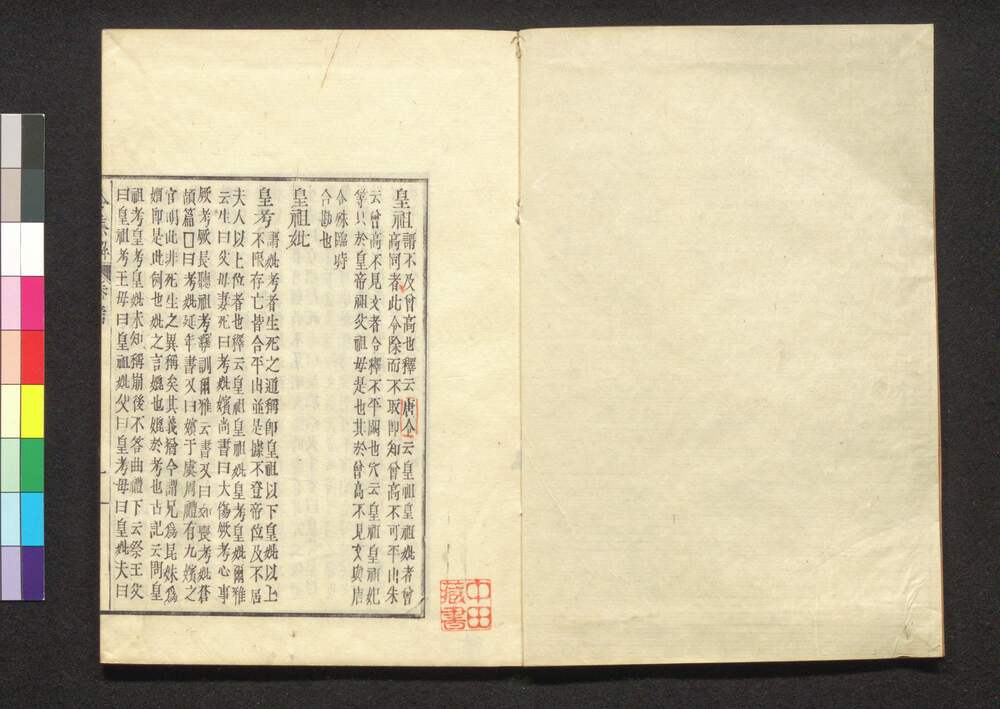 皇祖謂不及曾高也釋云唐令云皇祖皇祖妣者曾
高同者此令除而不取即知曾高不可平出朱
云曾高不見文者合釋不平闕也穴云皇祖皇祖妣
等只於皇帝祖父祖母是也其於曾高不見文與唐
令殊臨時
合勘也
皇祖妣
皇考謂妣考者生死之通稱即皇祖以下皇妣以上
不限存亡皆合平出並是據不登帝位及不居
夫人以上位者也釋云皇祖皇祖妣皇考皇妣爾雅
云生曰父母妻死曰考妣嬪尚書曰大傷厥考心事
厥考厥長聽祖考彝訓爾雅云書又曰如喪考妣蒼
頡篇囗曰考妣延年書又曰嬪于虞周禮有九嬪之
官明此非死生之異稱矣其義猶今謂兄爲昆妹爲
媦即是此例也妣之言媲也媲於考也古記云問皇
祖考皇考皇妣未知稱崩後不答曲禮下云祭王父
曰皇祖考王母曰皇祖妣父曰皇考母曰皇妣夫曰
中田
藏書